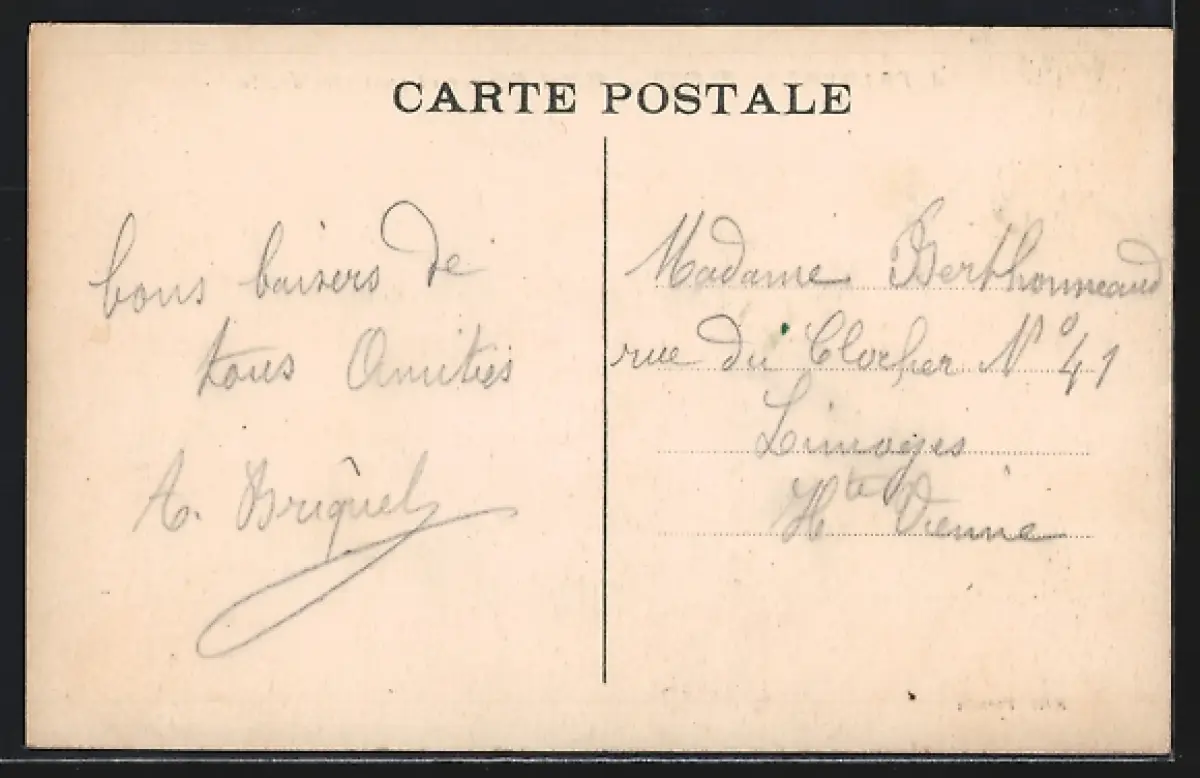 CARTE POSTALE
bons baisers de
tous Amitiés
A. Briquel
Madame Berthonneaud
rue du Clocher N° 41
Limoges
Hte Vienne